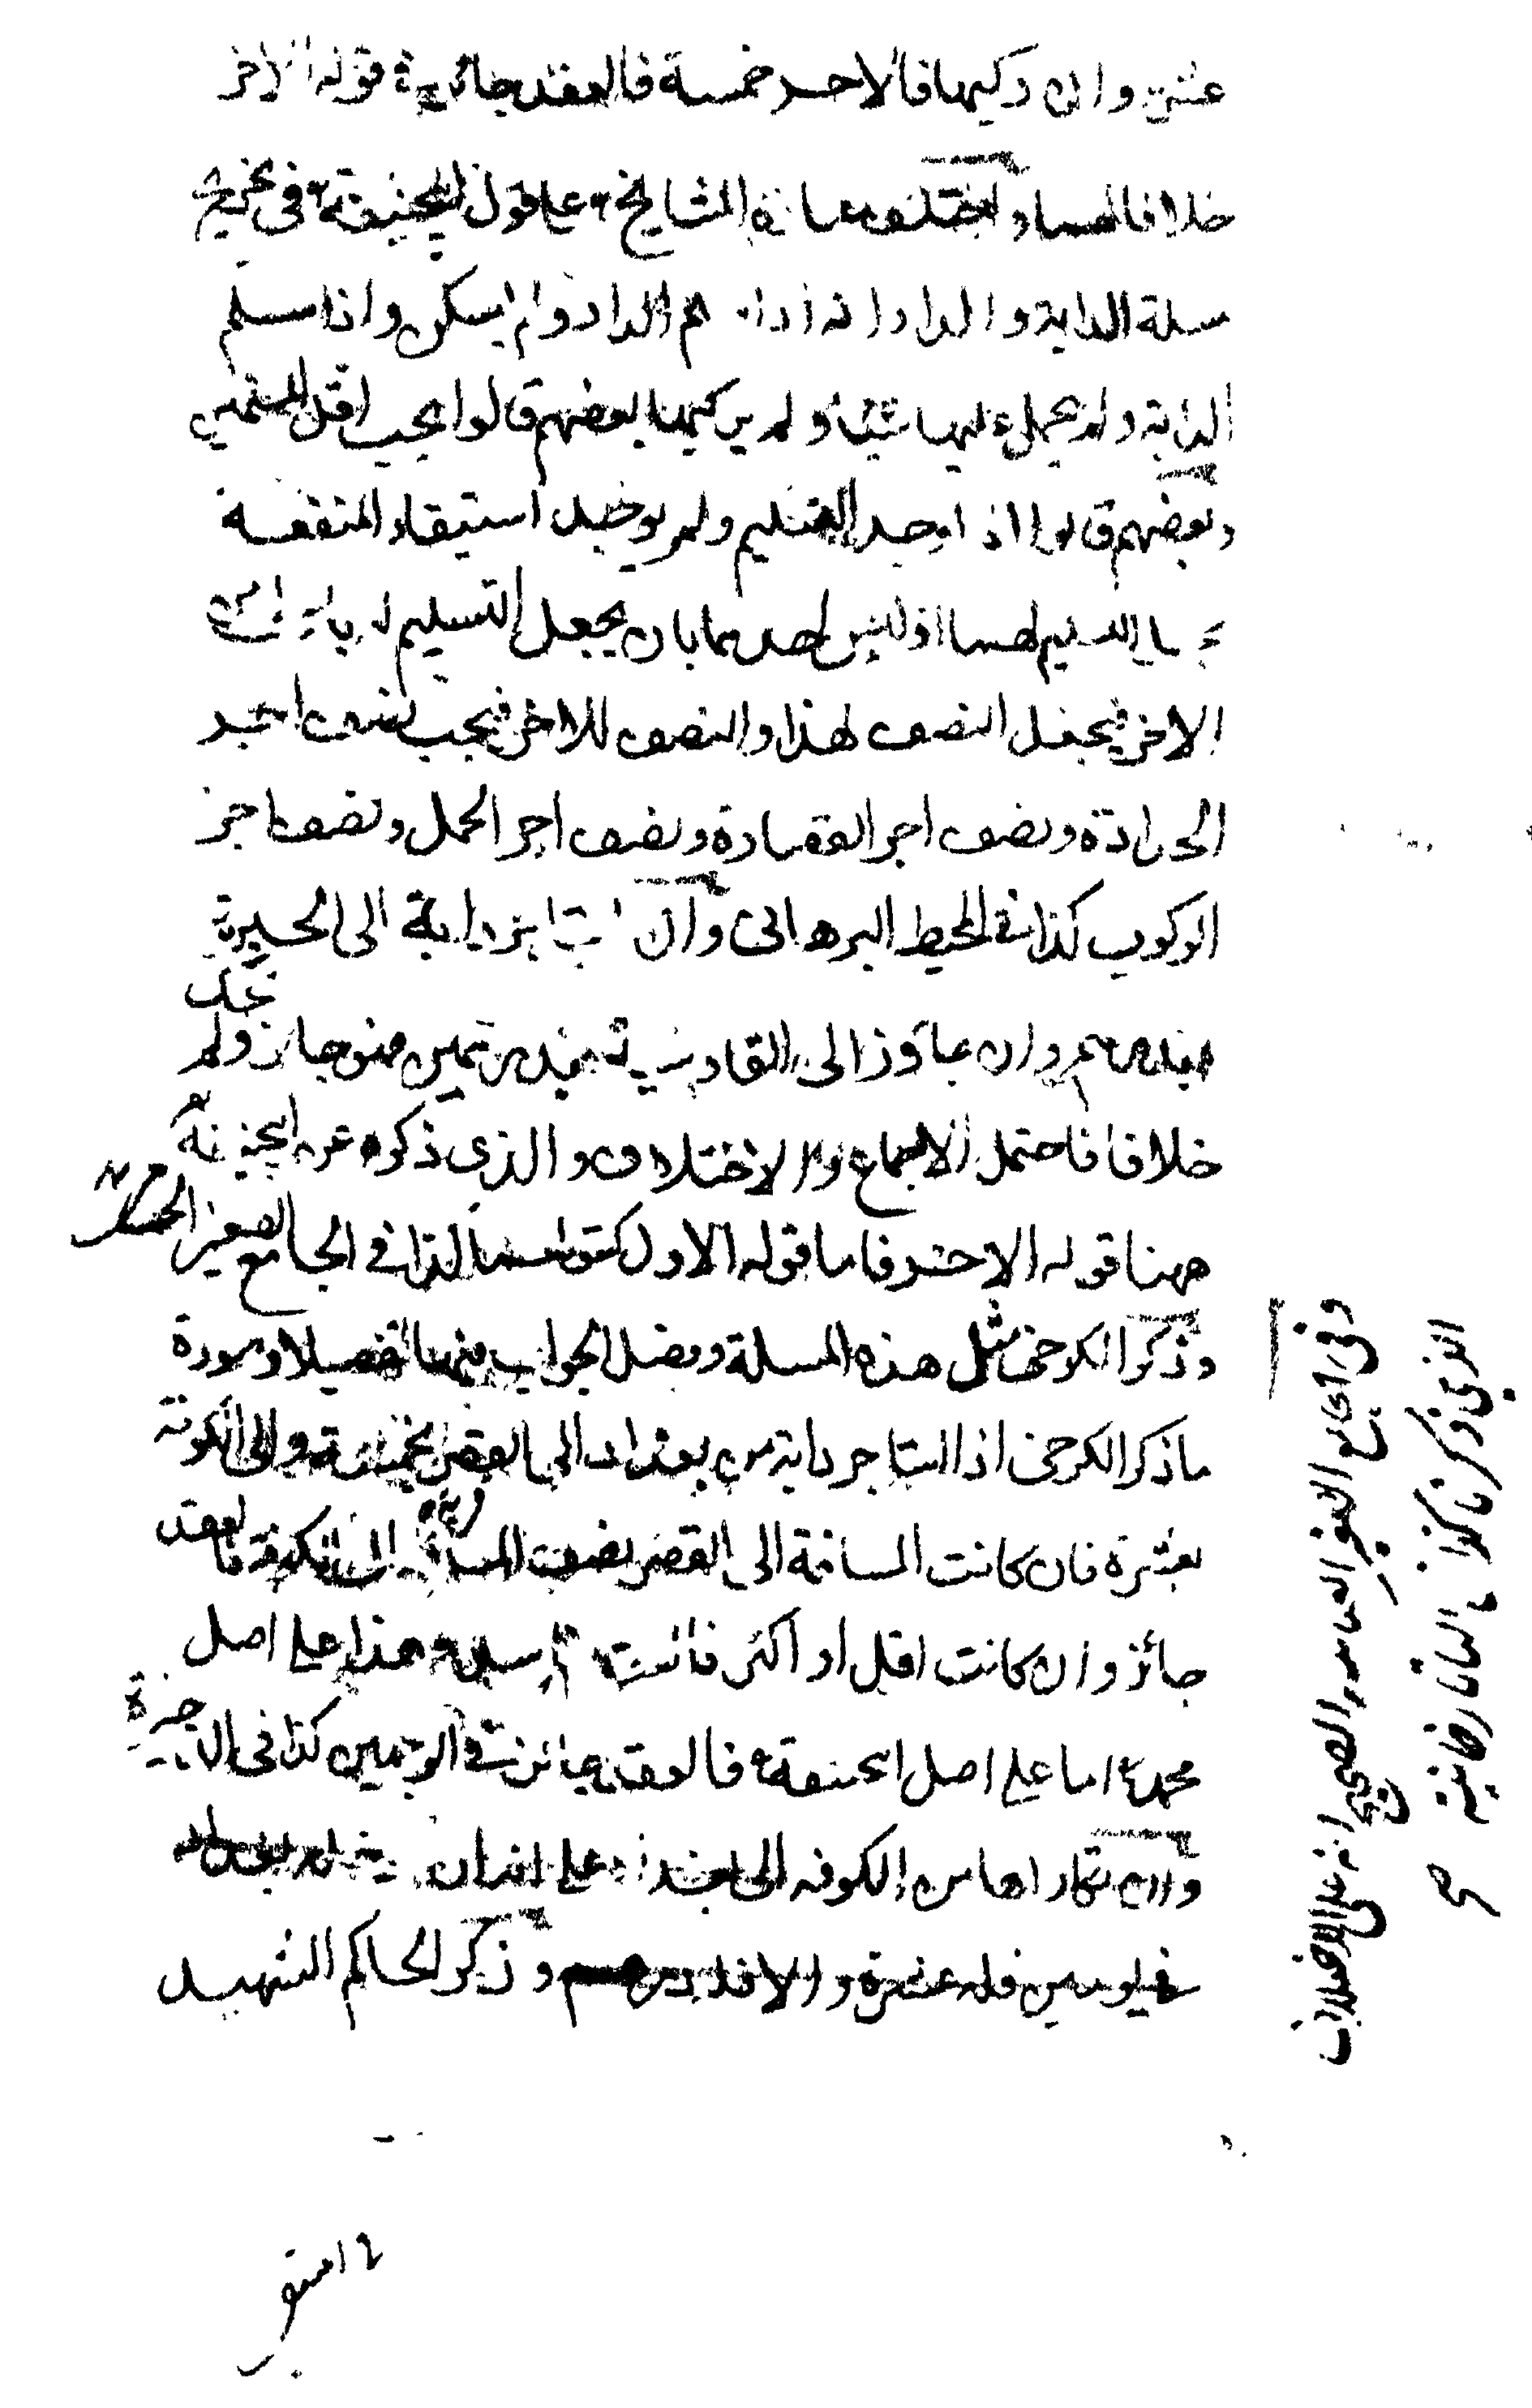 عشرة وان ركبها فالاجر خمسة فالعقد جائز في قوله الاخر
خلافا لهما واختلف عامة المشايخ على قول ابي حنيفة في تخريج
مسلة الدابة والدار انه اذا سلم الدار ولم يسكن واذا سلم
الدابة ولم يحمل عليها شيئا ولم يركبها بعضهم قالوا يجب اقل المسميين
وبعضهم قالوا اذا وجد التسليم ولم يوجد استيفاء المنفعة
التسليم لهما اذ ليس احدهما بان يجعل التسليم له باولى من
الاخر فيجعل النصف لهذا والنصف للاخر فيجب نصف اجر
الحدادة ونصف اجر القصارة ونصف اجر الحمل ونصف اجر
الركوب كذا في المحيط البرهاني وان استاجر دابة الى الحيرة
بنصف درهم وان جاوز الى القادسية فبدرهمين فهو جائز ولم يحك
خلافا فاحتمل الاجماع والاختلاف والذي ذكره عن ابي حنيفة
ههنا قوله الاخر فاما قوله الاول كقولهما كذا في الجامع الصغير
وذكر الكرخي مثل هذه المسلة وفصل الجواب فيها تفصيلا وصورة
ماذكر الكرخي اذا استاجر دابة من بغداد الى القصر بخمسة والى الكوفة
بعشرة فان كانت المسافة الى القصر نصف المسافة الى الكوفة فالعقد
جائز وان كانت اقل او اكثر فالمسلة وهذا على اصل
محمد اما على اصل ابي حنيفة فالعقد جائز في الوجهين كذا في الذخيرة
وان تكاراها من الكوفة الى بغداد على انه ان
في يومين فله عشرة والا فله درهم وذكر الحاكم الشهيد
وفي الجامع الصغير الصحيح انه على الاختلاف
الذي ذكرنا كذا في التاتارخانية